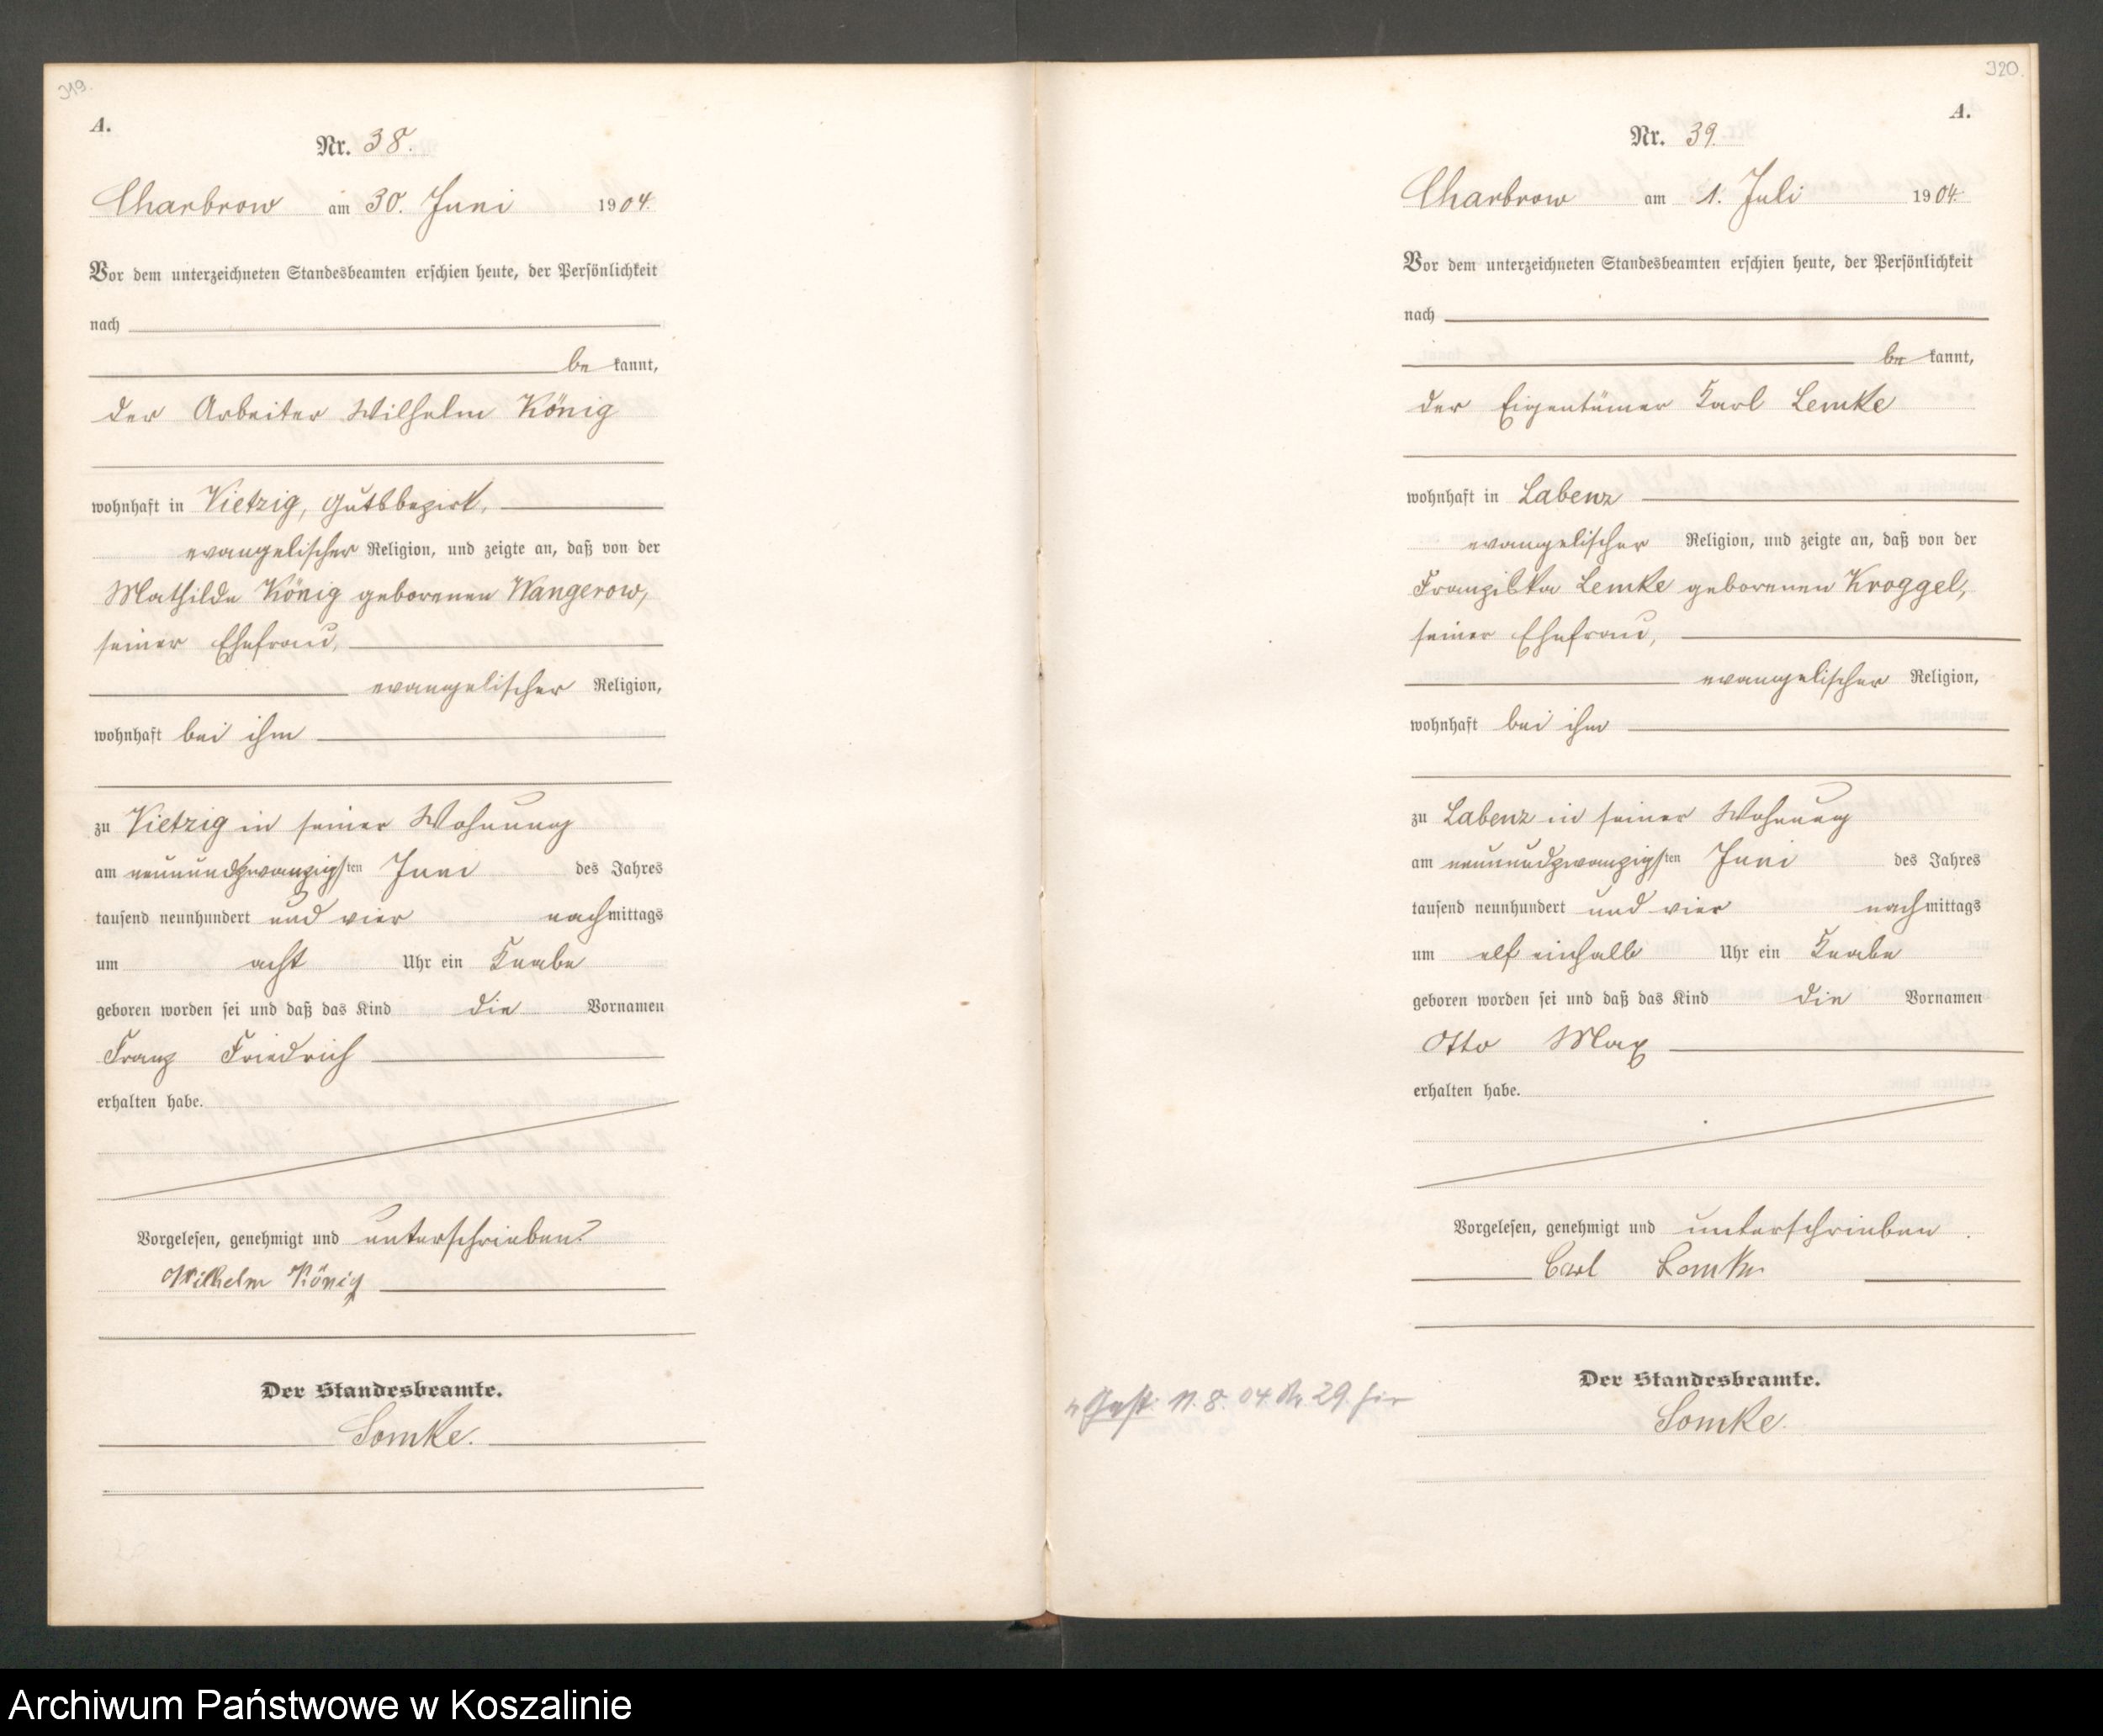 319.
A.
Nr. 38.
Charbrow am 30. Juni 1904.
Vor dem unterzeichneten Standesbeamten erschien heute, der Persönlichkeit
nach
be kannt,
der Arbeiter Wilhelm König
wohnhaft in Vietzig, Gutsbezirk,
evangelischer Religion, und zeigte an, daß von der
Mathilde König geborenen Wangerow,
seiner Ehefrau,
evangelischer Religion,
wohnhaft bei ihm
zu Vietzig in seiner Wohnung
am neunundzwanzigsten Juni des Jahres
tausend neunhundert und vier nachmittags
um acht Uhr ein Knabe
geboren worden sei und daß das Kind die Vornamen
Franz Friedrich
erhalten habe.
Vorgelesen, genehmigt und unterschrieben.
Wilhelm König
Der Standesbeamte.
Somke.
320.
A.
Nr. 39.
Charbrow am 1. Juli 1904.
Vor dem unterzeichneten Standesbeamten erschien heute, der Persönlichkeit
nach
be kannt,
der Eigentümer Karl Lemke
wohnhaft in Labenz
evangelischer Religion, und zeigte an, daß von der
Franziska Lemke geborenen Kroggel,
seiner Ehefrau,
evangelischer Religion,
wohnhaft bei ihm
zu Labenz in seiner Wohnung
am neunundzwanzigsten Juni des Jahres
tausend neunhundert und vier nachmittags
um elf einhalb Uhr ein Knabe
geboren worden sei und daß das Kind die Vornamen
Otto Max
erhalten habe.
Vorgelesen, genehmigt und unterschrieben.
Carl Lemke
Der Standesbeamte.
Somke.
Gest. 11. 8. 04 No. 29. hier
Archiwum Państwowe w Koszalinie